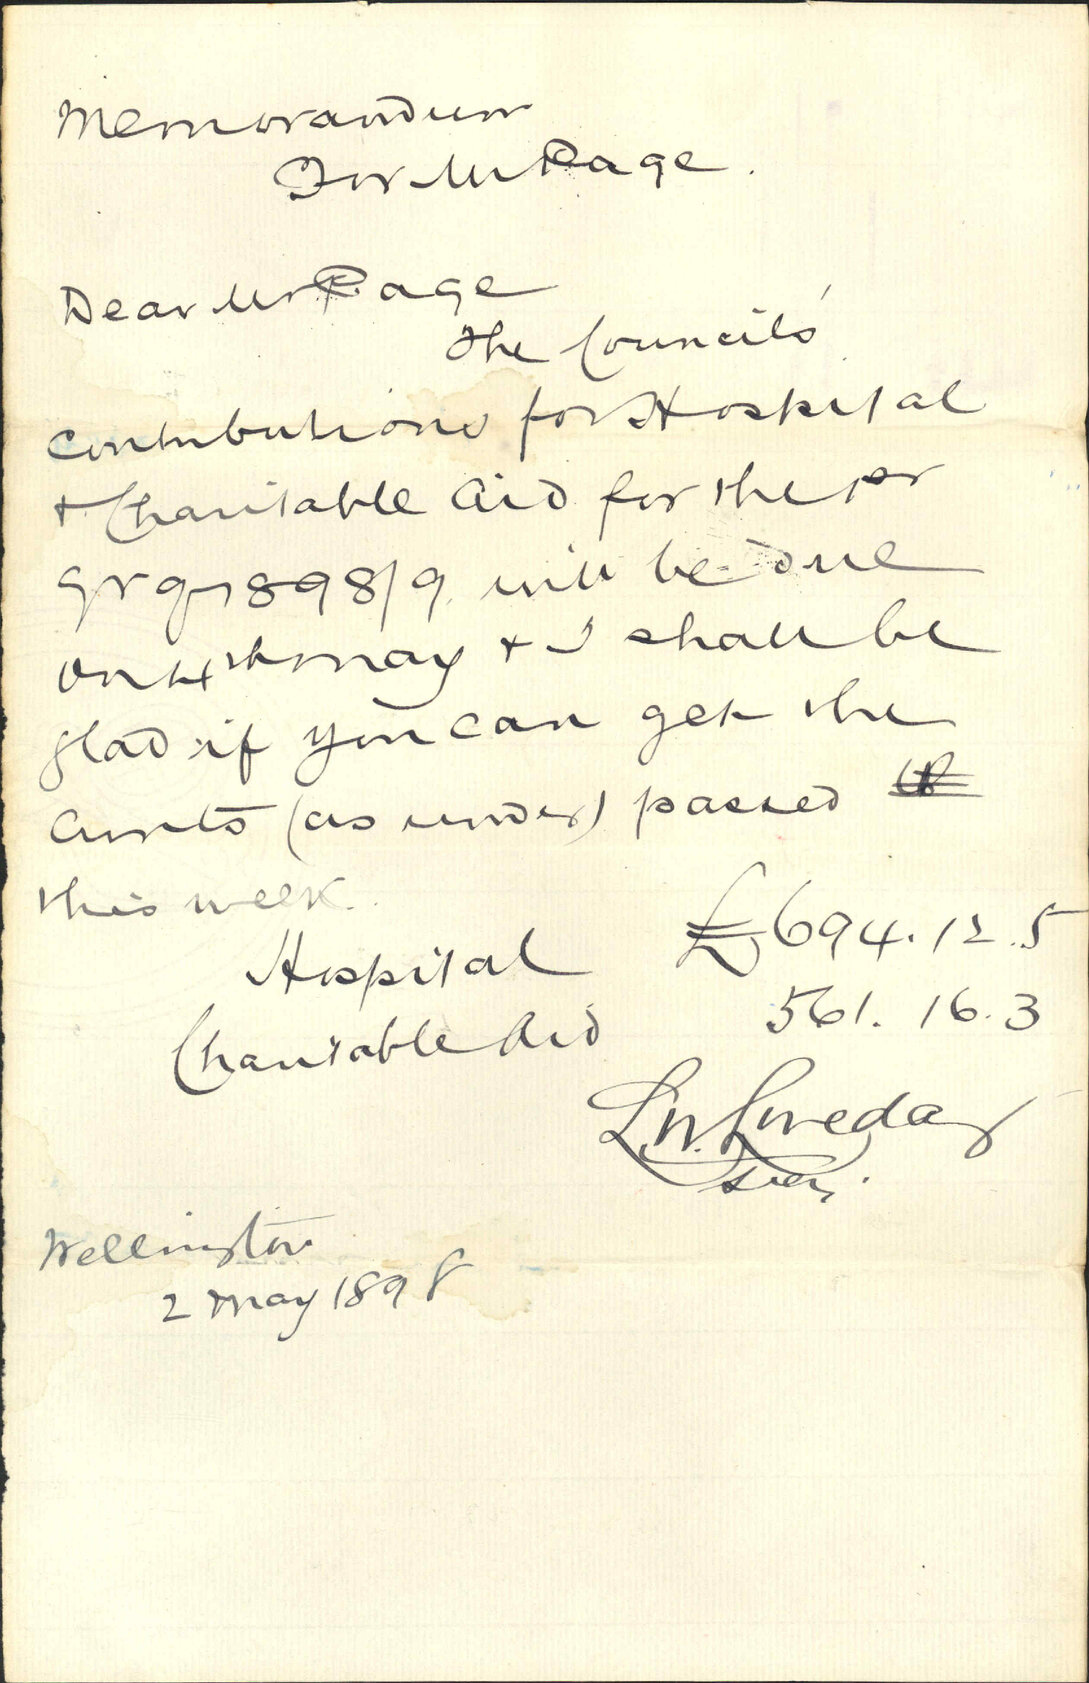 Memorandum
For Mr Page.
Dear Mr Page
The Councils'
contributions for Hospital
+ Charitable Aid for the 1st
qr of 1898/9 will be due
on 14th May + I shall be
glad if you can get the
amts (as under) passed
this week.
Hospital £694.12.5
Charitable Aid 561.16.3
L.W. Loveday
Secy.
Wellington
2 May 1898